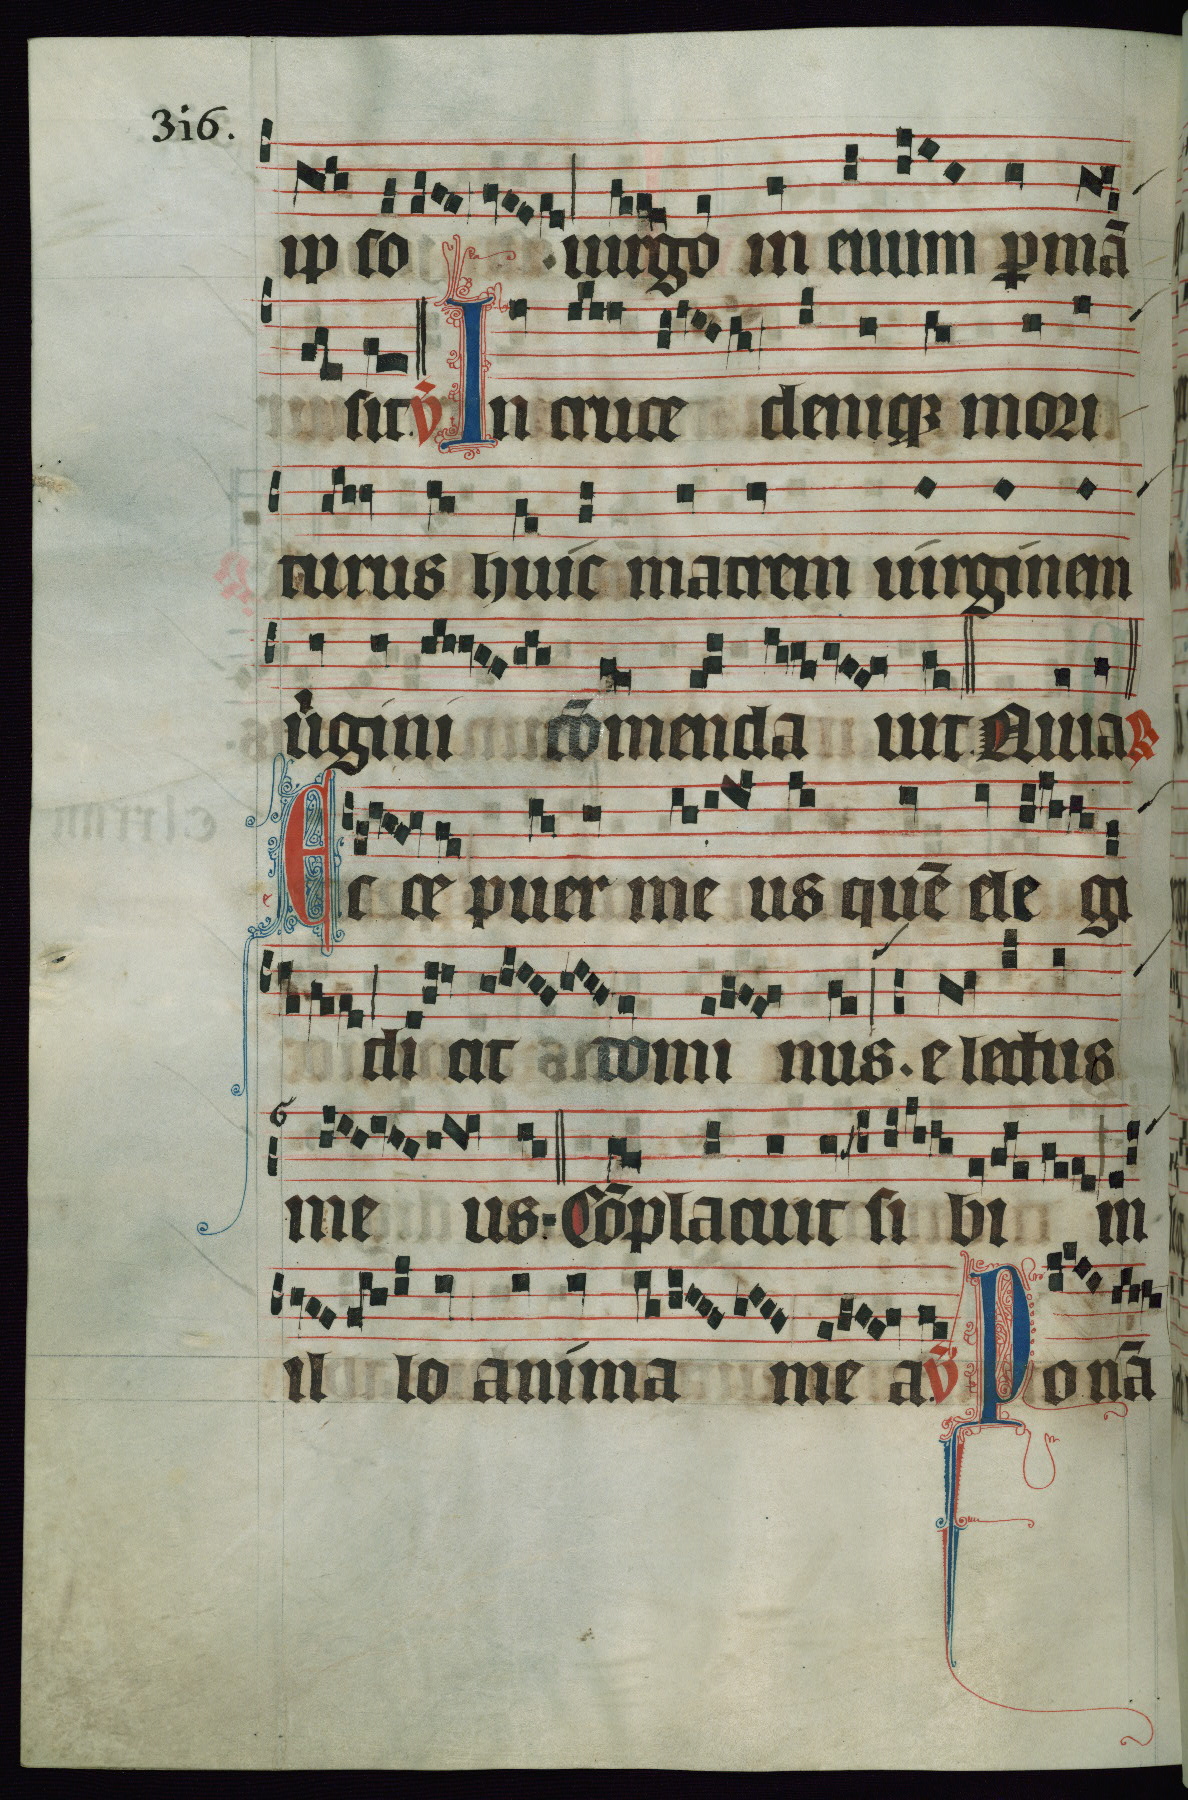 3i6.
ip so uirgo in euum ꝑmā
sit. v̄ In cruce deniqꝫ mori
turus huic matrem uirginem
uⁱgini cōmenda uit. Quia R
Ec ce puer me us quē ele gi
di cit domi nus. e lectus
me us. Cōplacuit si bi in
il lo anima me a. v̄ Ponā